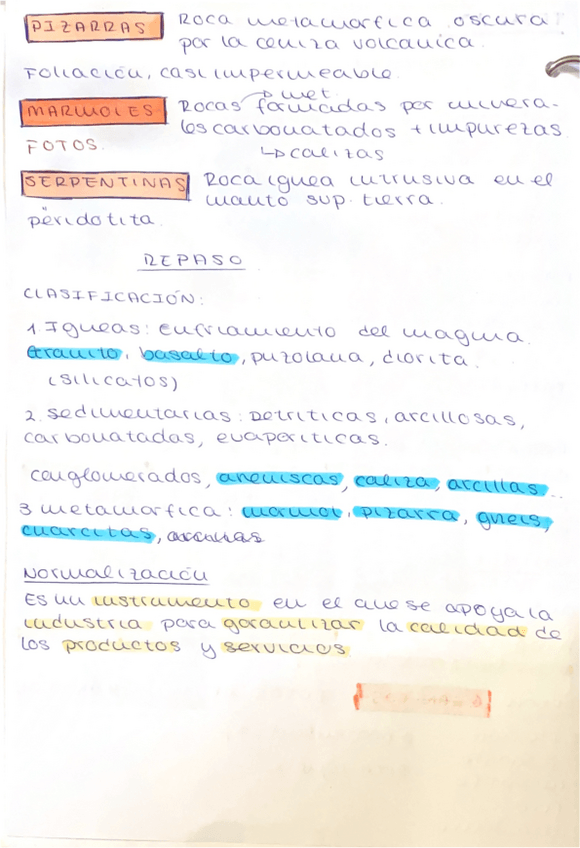 PIZARRAS Roca metamorfica oscura
por la ceniza volcanica.
Foliación, casi impermeable.
↳ met.
MARMOLES Rocas formadas por minera-
les carbonatados + impurezas.
FOTOS. ↳ calizas
SERPENTINAS Roca ignea intrusiva en el
manto sup. tierra.
peridotita.
REPASO
CLASIFICACIÓN:
1 Igneas: enfriamiento del magma.
Granito, basalto, puzolana, diorita.
(silicatos)
2. Sedimentarias: Detriticas, arcillosas,
carbonatadas, evaporiticas.
conglomerados, areniscas, caliza, arcillas...
3 metamorfica: marmol, pizarra, gneis,
cuarcitas,
Normalización
Es un instrumento en el que se apoya la
industria para garantizar la calidad de
los productos y servicios